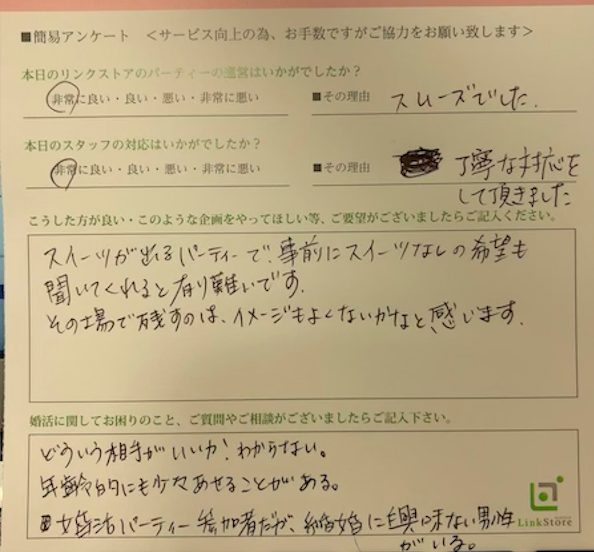 ■簡易アンケート ＜サービス向上の為、お手数ですがご協力をお願い致します＞
本日のリンクストアのパーティーの運営はいかがでしたか？
非常に良い・良い・悪い・非常に悪い ■その理由 スムーズでした.
本日のスタッフの対応はいかがでしたか？
非常に良い・良い・悪い・非常に悪い ■その理由 丁寧な対応を
して頂きました
こうした方が良い・このような企画をやってほしい等、ご要望がございましたらご記入ください。
スイーツが出るパーティーで、事前にスイーツなしの希望も
聞いてくれると有り難いです.
その場で残すのは、イメージもよくないかなと感じます.
婚活に関してお困りのこと、ご質問やご相談がございましたらご記入下さい。
どういう相手がいいか！わからない。
年齢的にも少々あせることがある。
婚活パーティー参加者だが、結婚に興味ない男性
がいる。
LinkStore